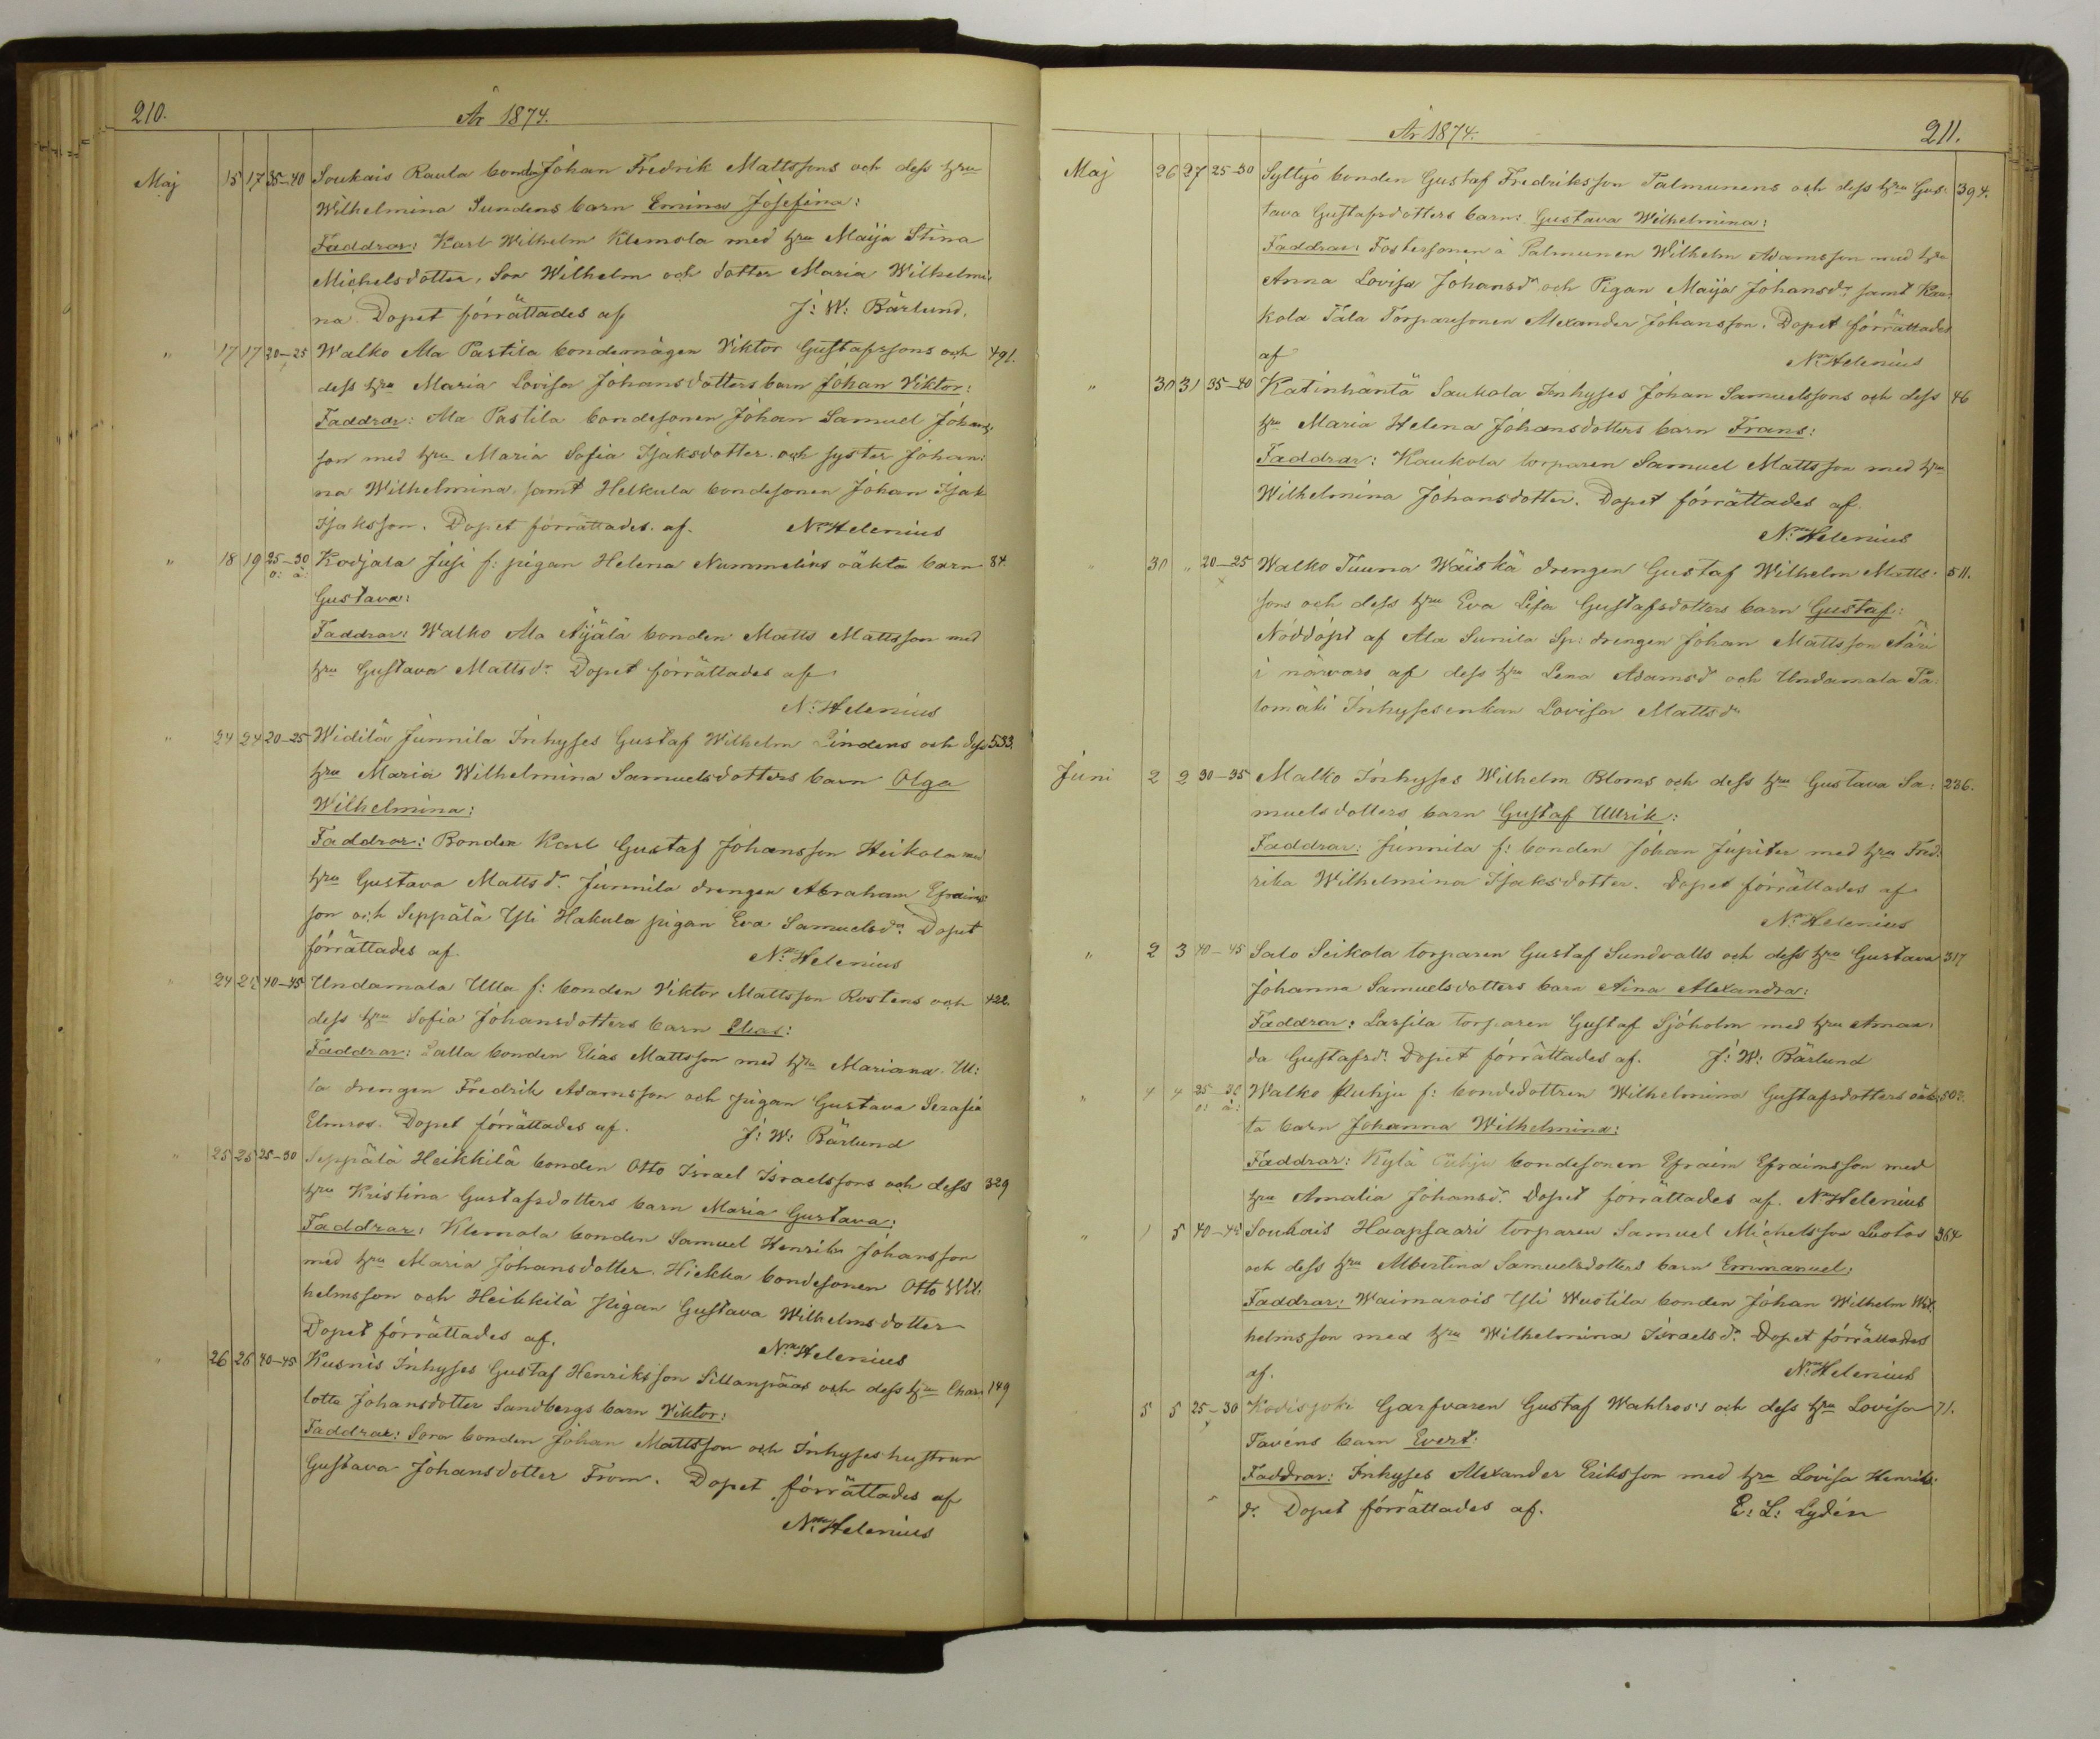 210.
År 1874.
Maj 15 17 35–40 Soukais Raula bonden Johan Fredrik Mattssons och dess hru
Wilhelmina Sundens barn Emina Josefina:
Faddrar: Karl Wilhelm Klemola med hru Maija Stina
Michelsdotter, Son Wilhelm och dotter Maria Wilhelmi-
na. Dopet förrättades af J: W: Bärlund.
" 17 17 20–25 Walko Ala Pastila bondemågen Viktor Gustafssons och 491.
dess hru Maria Lovisa Johansdotters barn Johan Viktor:
Faddrar: Ala Pastila bondesonen Johan Samuel Johans-
son med hru Maria Sofia Isaksdotter och syster Johan-
na Wilhelmina, samt Helkula bondesonen Johan Isak
Isaksson. Dopet förrättades af. Nm Helenius
" 18 19 25–30 Kodjala Jusi f: pigan Helena Nummelins oäkta barn 84.
o: ä:
Gustava:
Faddrar: Walko Ala Äijälä bonden Matts Mattsson med
hru Gustava Mattsdr. Dopet förrättades af
N: Helenius
" 24 24 20–25 Widilä Junnila Inhyses Gustaf Wilhelm Lindens och dess 533.
hru Maria Wilhelmina Samuelsdotters barn Olga
Wilhelmina:
Faddrar: Bonden Karl Gustaf Johansson Heikola med
hru Gustava Mattsdr. Junnila drengen Abraham Efraims-
son och Seppälä Yli Hakula pigan Eva Samuelsdr. Dopet
förrättades af. Nm Helenius
24 25 40–45 Undamala Ulla f: bonden Viktor Mattsson Rostens och 422.
dess hru Sofia Johansdotters barn Elias:
Faddrar: Lalla bonden Elias Mattsson med hru Mariana. Ul-
la drengen Fredrik Adamsson och pigan Gustava Serafia
Elmros. Dopet förrättades af. J: W: Bärlund
" 25 26 25–30 Seppälä Heikkilä bonden Otto Israel Israelssons och dess 329
hru Kristina Gustafsdotters barn Maria Gustava:
Faddrar: Klemola bonden Samuel Henrik Johansson
med hru Maria Johansdotter. Hiekka bondesonen Otto Wil-
helmsson och Heikkilä pigan Gustava Wilhelmsdotter
Dopet förrättades af. Nm Helenius
" 26 26 40–45 Kusnis Inhyses Gustaf Henriksson Sillanpääs och dess hru Char- 149
lotta Johansdotter Sandbergs barn Viktor:
Faddrar: Sora bonden Johan Mattsson och Inhyseshustrun
Gustava Johansdotter From. Dopet förrättades af
Nm Helenius
År 1874.
211.
Maj 26 27 25–30 Syltyö bonden Gustaf Fredriksson Palmunens och dess hru Gus- 394.
tava Gustafsdotters barn: Gustava Wilhelmina:
Faddrar: Fostersonen à Palmunen Wilhelm Adamsson med hru
Anna Lovisa Johansdr och Pigan Maija Johansdr. samt Kau-
kola Tala Torparesonen Alexander Johansson. Dopet förrättades
af Nm Helenius
" 30 31 35–40 Katinhäntä Saukola Inhyses Johan Samuelssons och dess 46
hru Maria Helena Johansdotters barn Frans:
Faddrar: Kaukola torparen Samuel Mattsson med hru
Wilhelmina Johansdotter. Dopet förrättades af.
Nm Helenius
" 30 " 20–25 Walko Tuuna Wäiskä drengen Gustaf Wilhelm Matts- 511.
sons och dess hru Eva Lisa Gustafsdotters barn Gustaf:
Nöddöpt af Ala Sunila Sp: drengen Johan Mattsson Ääri
i närvaro af dess hru Lena Adamsdr och Undamala Pa-
lomäki Inhysesenkan Lovisa Mattsdr
Juni 2 2 30–35 Malko Inhyses Wilhelm Bloms och dess hru Gustava Sa- 236.
muelsdotters barn Gustaf Ullrik:
Faddrar: Junnila f: bonden Johan Jupiter med hru Fred-
rika Wilhelmina Isaksdotter. Dopet förrättades af
Nm Helenius
" 2 3 40–45 Salo Seikola torparen Gustaf Sundvalls och dess hru Gustava 317
Johanna Samuelsdotters barn Aina Alexandra:
Faddrar: Larsila torparen Gustaf Sjöholm med hru Aman-
da Gustafsdr. Dopet förrättades af. J: W: Bärlund
" 4 4 25–30 Walko Puhju f: bondedottren Wilhelmina Gustafsdotters oäk-
o: ä:
ta barn Johanna Wilhelmina:
Faddrar: Kylä bondesonen Efraim Efraimsson med
hru Amalia Johansdr. Dopet förrättades af. Nm Helenius
" 5 40–45 Soukais Haapsaari torparen Samuel Michelsson Luotos 364
och dess hru Albertina Samuelsdotters barn Emmanuel:
Faddrar: Waimarois Yli Wuotila bonden Johan Wilhelm Wil-
helmsson med hru Wilhelmina Israelsdr. Dopet förrättades
af. Nm Helenius
5 5 25–30 Kodisjoki Garfvaren Gustaf Wahlros's och dess hru Lovisa 71.
Tavéns barn Evert:
Faddrar: Inhyses Alexander Eriksson med hru Lovisa Henriks-
dr. Dopet förrättades af. E: L: Lydén